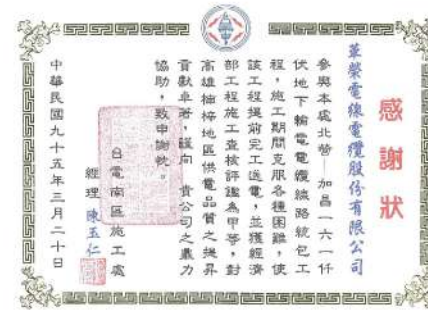 感謝狀
華榮電線電纜股份有限公司
參與本處北營—加昌一六一仟
伏地下輸電電纜線路統包工
程，施工期間克服各種困難，使
該工程提前完工送電，並獲經濟
部工程施工查核評鑑為甲等，對
高雄楠梓地區供電品質之提昇
貢獻卓著，謹向 貴公司之鼎力
協助，致申謝忱。
台電南區施工處
經理 陳玉仁
中華民國九十五年三月二十日